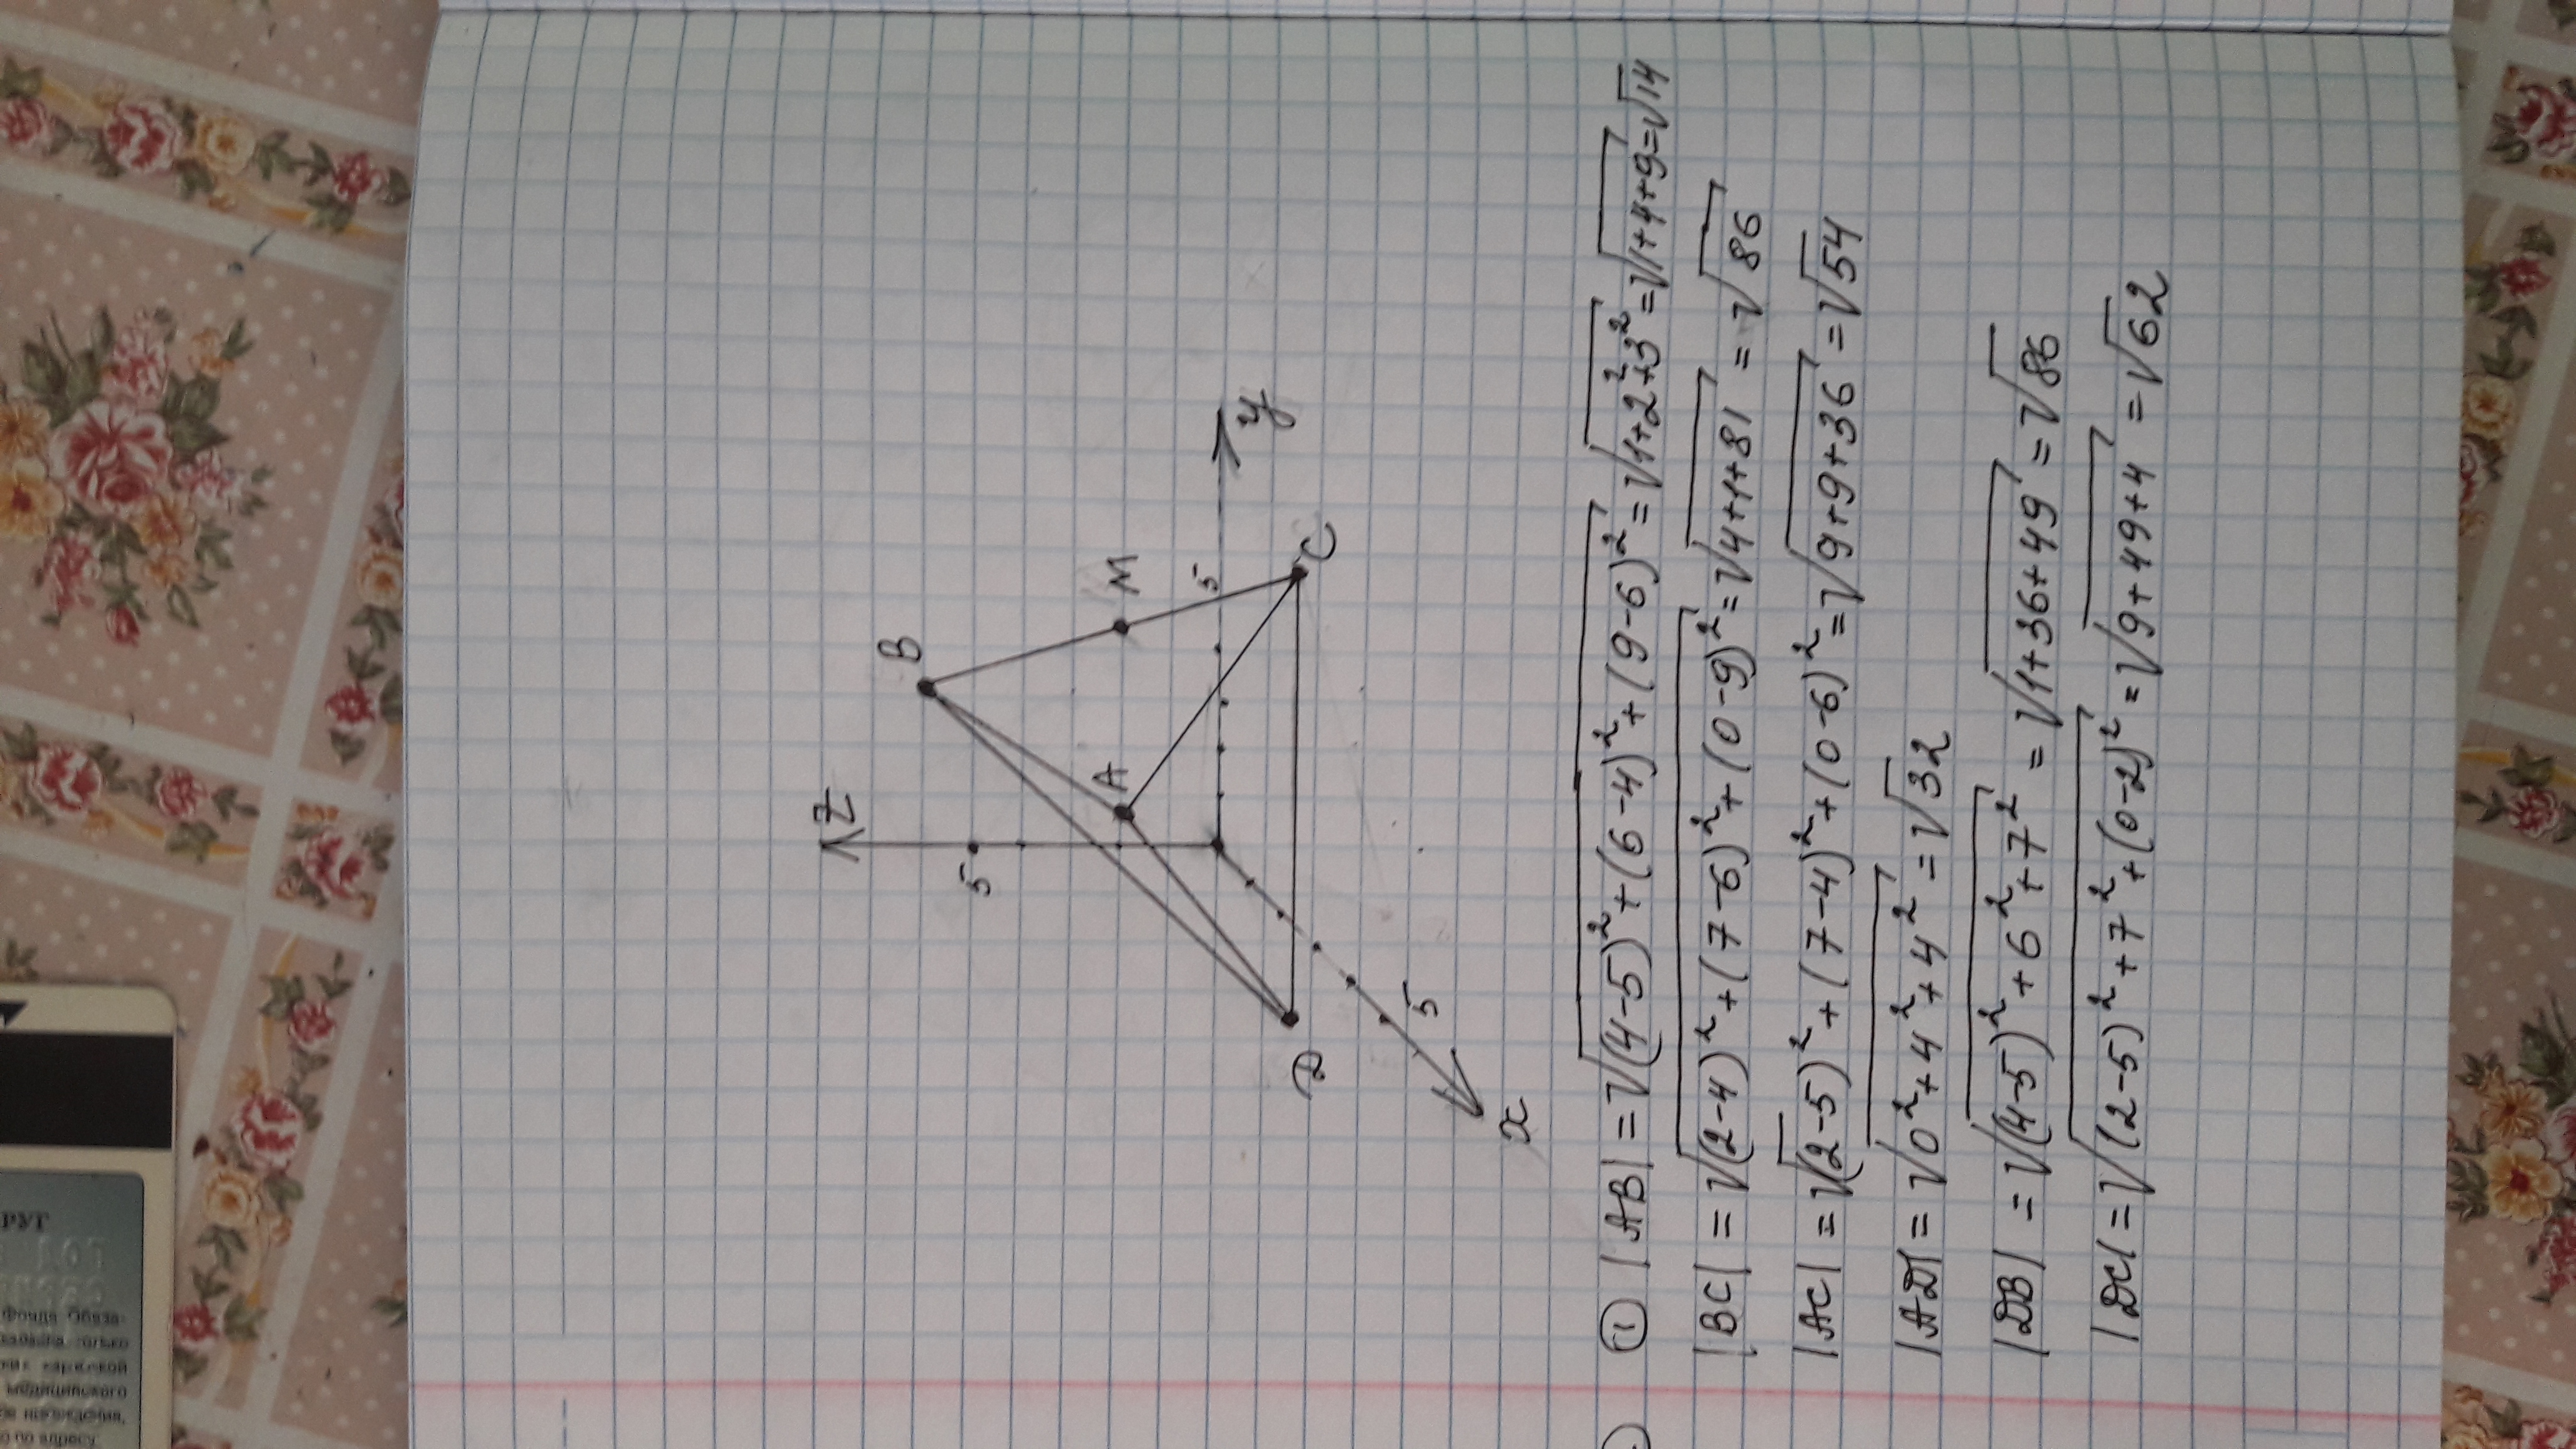 z
B
5
A
M
5
y
C
D
5
x
① |AB| = √((4-5)²+(6-4)²+(9-6)²) = √(1+2²+3²) = √(1+4+9) = √14
|BC| = √((2-4)²+(7-6)²+(0-9)²) = √(4+1+81) = √86
|AC| = √((2-5)²+(7-4)²+(0-6)²) = √(9+9+36) = √54
|AD| = √(0²+4²+4²) = √32
|DB| = √((4-5)²+6²+7²) = √(1+36+49) = √86
|DC| = √((2-5)²+7²+(0-2)²) = √(9+49+4) = √62
РУГ
Фонда Обяза-
только
медицинского
по адресу: